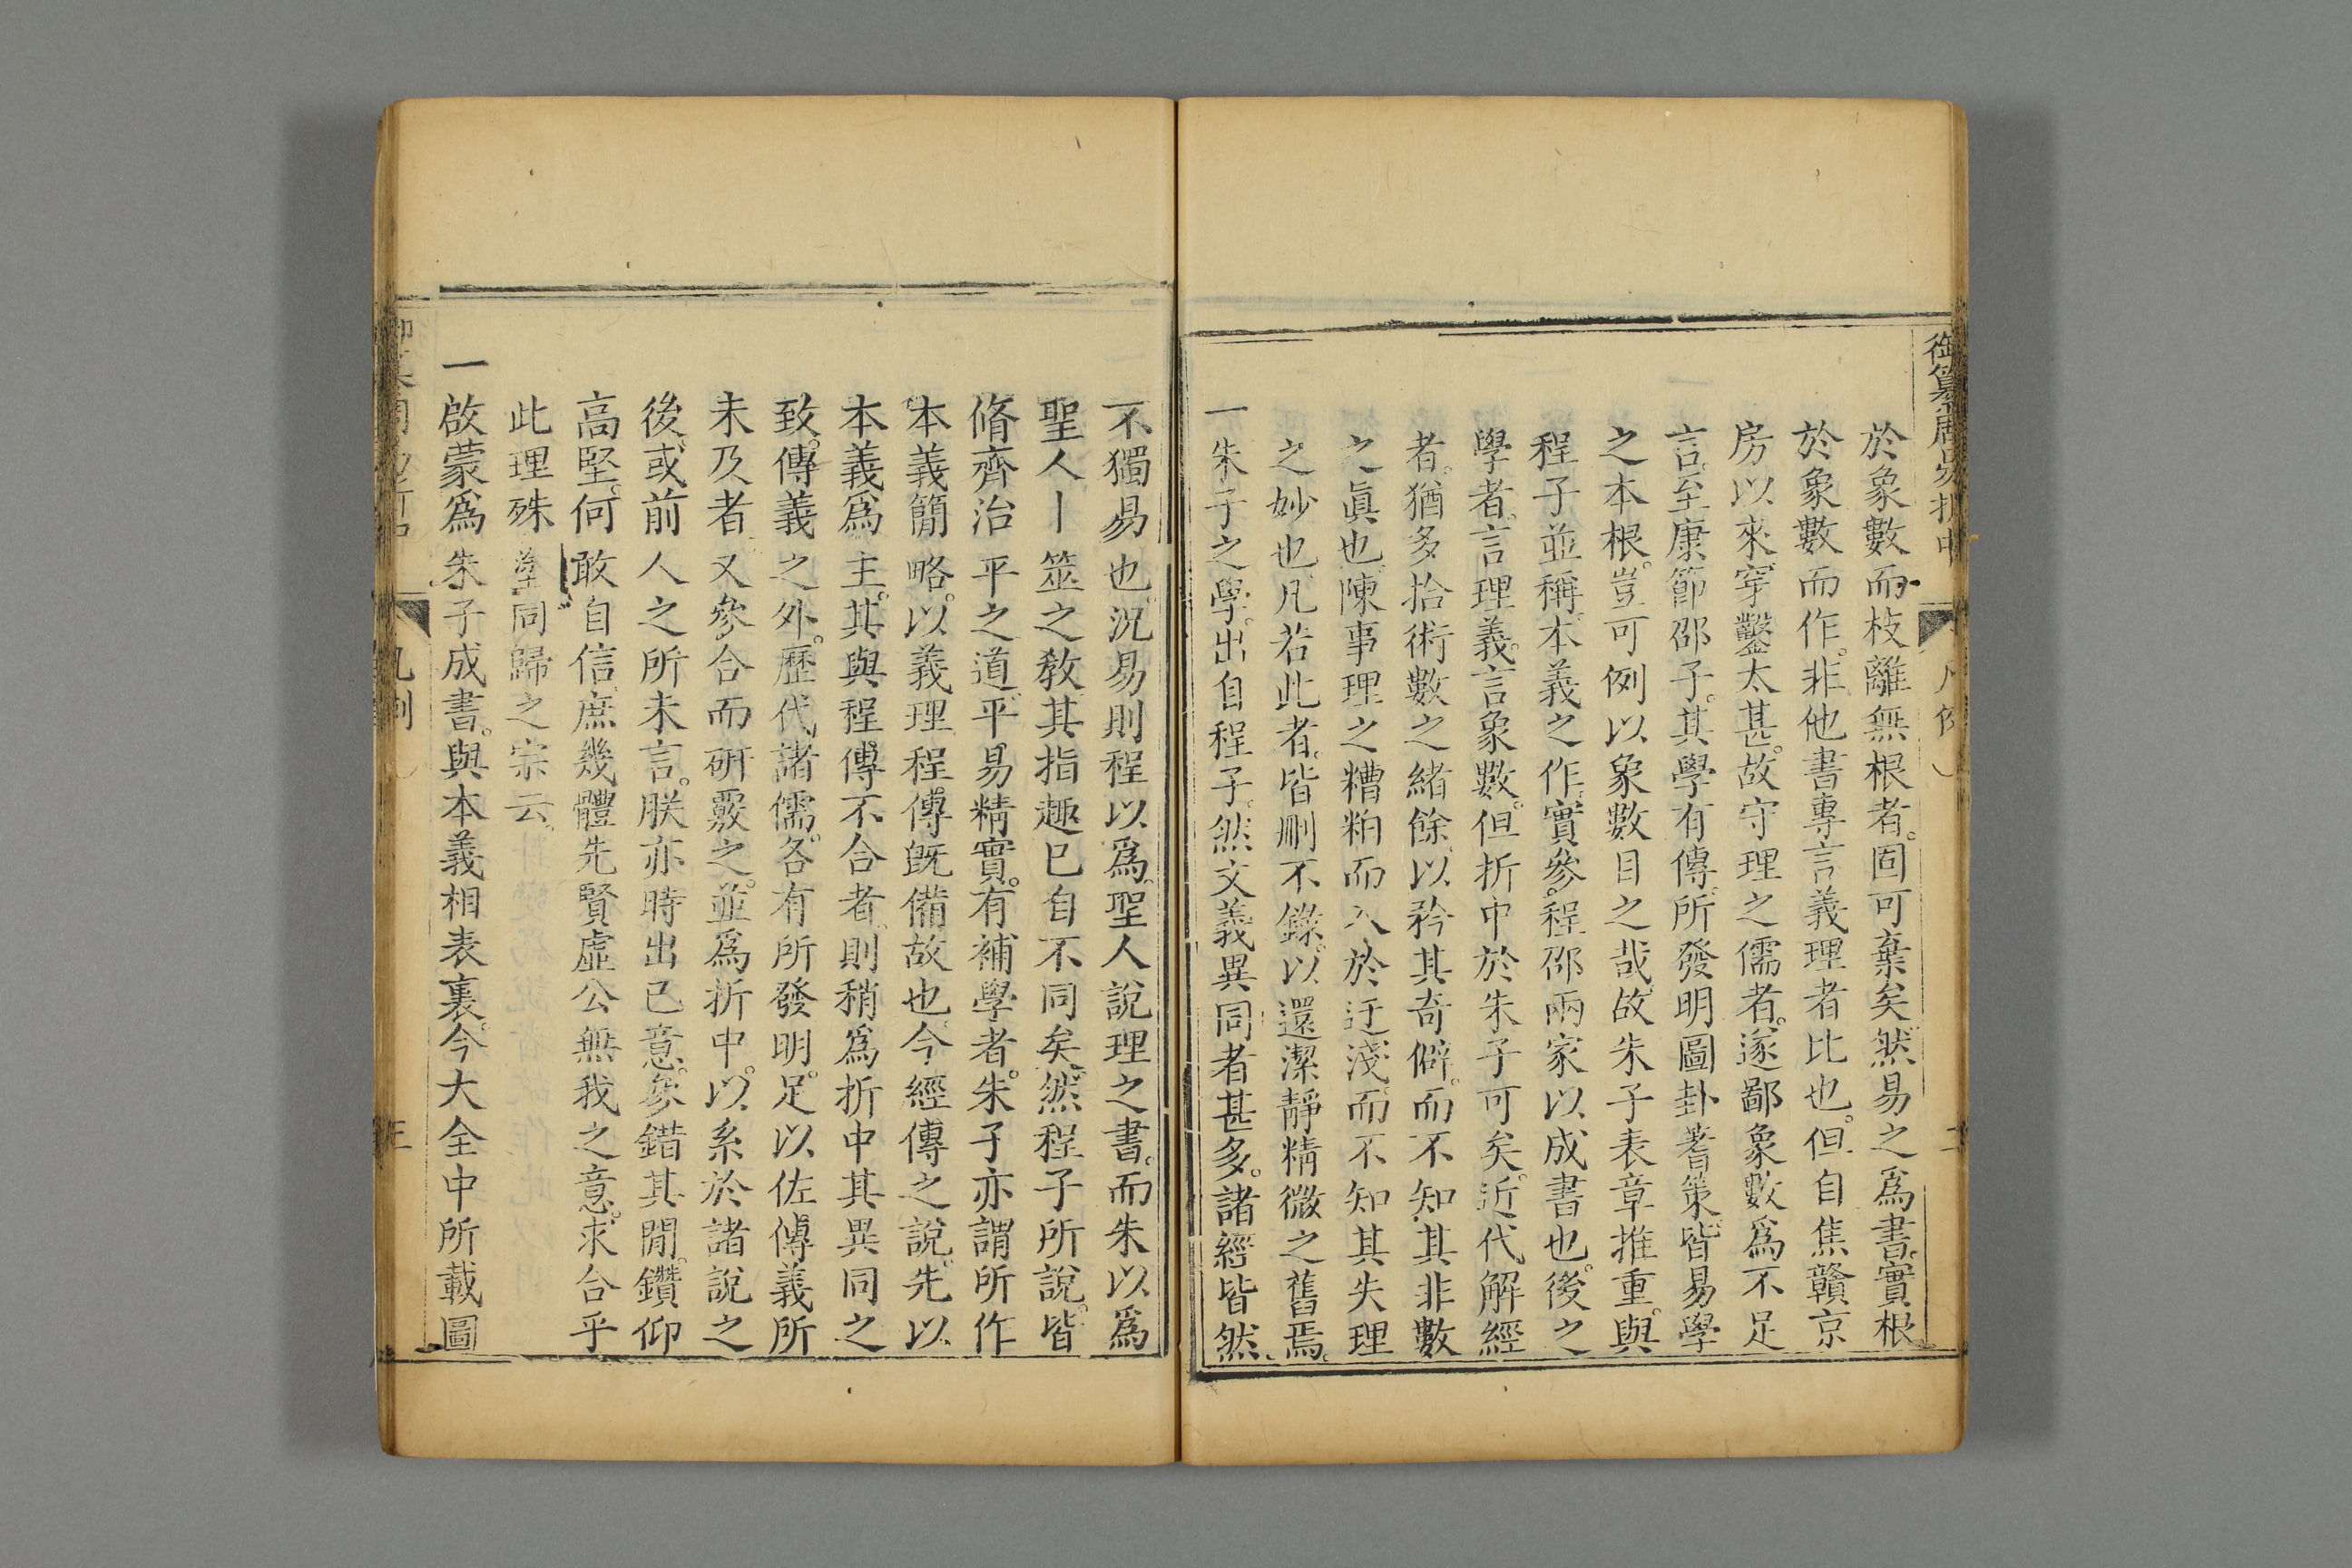 御纂周易折中
於象數而枝離無根者。固可棄矣。然易之爲書。實根
於象數而作。非他書專言義理者比也。但自焦贛京
房以來。穿鑿太甚。故守理之儒者。遂鄙象數爲不足
言。至康節邵子。其學有傳。所發明圖卦蓍策。皆易學
之本根。豈可例以象數目之哉。故朱子表章推重。與
程子並稱。本義之作。實參。程邵兩家以成書也。後之
學者。言理義。言象數。但折中於朱子可矣。近代解經
者。猶多拾術數之緒餘。以矜其奇僻。而不知其非數
之眞也。陳事理之糟粕。而入於迂淺。而不知其失理
之妙也。凡若此者。皆刪不錄。以還潔靜精微之舊焉。
一朱子之學。出自程子。然文義異同者甚多。諸經皆然。
不獨易也。況易則程以爲聖人說理之書。而朱以爲
聖人卜筮之教。其指趣已自不同矣。然程子所說。皆
脩齊治平之道。平易精實。有補學者。朱子亦謂所作
本義簡略。以義理程傳既備故也。今經傳之說。先以
本義爲主。其與程傳不合者。則稍爲折中其異同之
致。傳義之外。歷代諸儒。各有所發明。足以佐傳義所
未及者。又參合而研覈之。並爲折中。以系於諸說之
後。或前人之所未言。朕亦時出己意。參錯其閒。鑽仰
高堅。何敢自信。庶幾體先賢虛公無我之意。求合乎
此理殊塗同歸之宗云。
一啟蒙爲朱子成書。與本義相表裏。今大全中所載圖
凡例
三